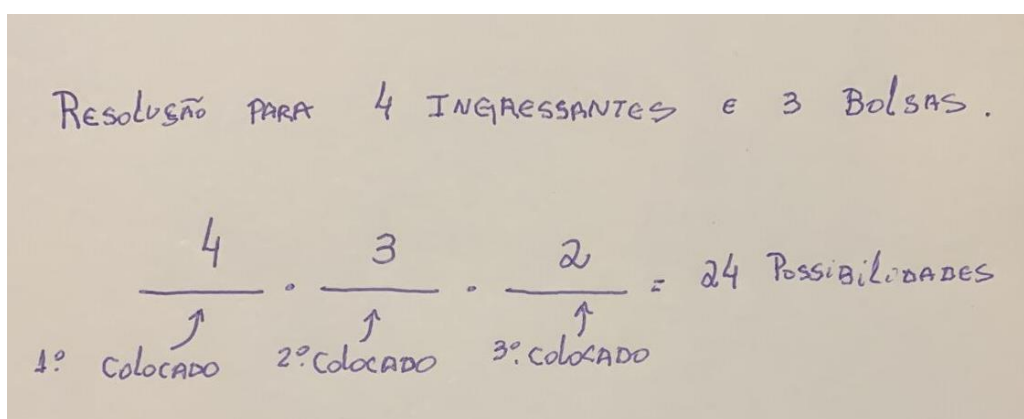 Resolução para 4 ingressantes e 3 bolsas.
4 . 3 . 2 = 24 possibilidades
1º colocado 2º colocado 3º colocado